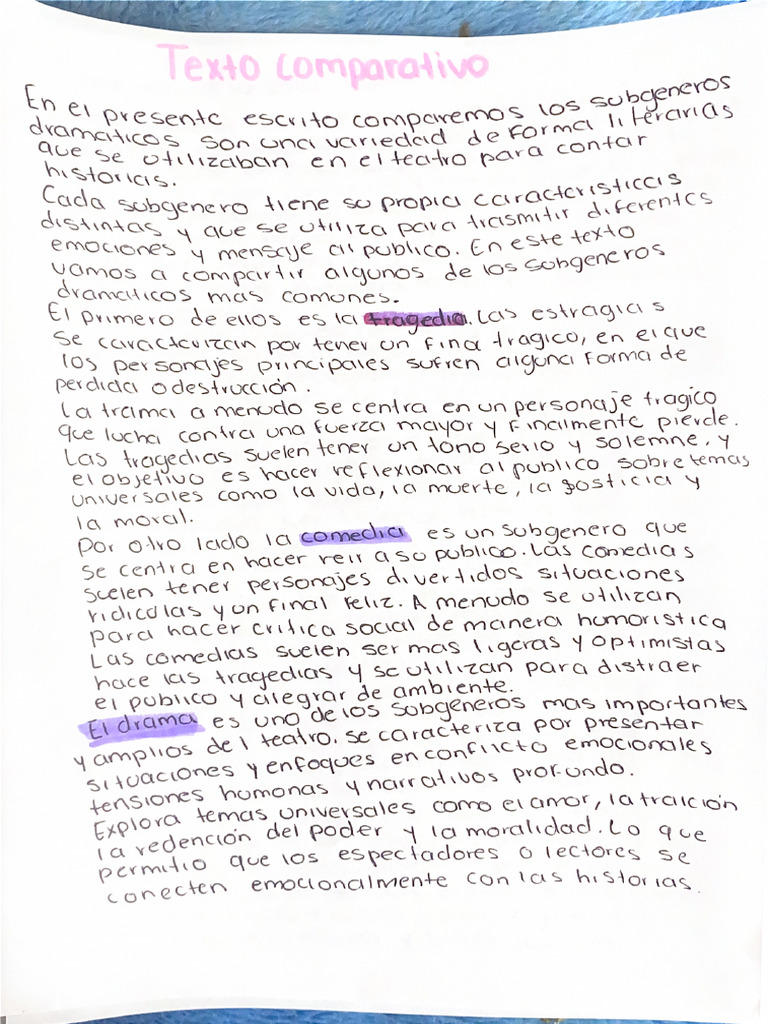 Texto comparativo
En el presente escrito comparemos los subgeneros
dramaticos son una variedad de forma literarias
que se utilizaban en el teatro para contar
historias.
Cada subgenero tiene su propia caracteristicas
distintas y que se utiliza para trasmitir diferentes
emociones y mensaje al publico. En este texto
vamos a compartir algunos de los subgeneros
dramaticos mas comunes.
El primero de ellos es la tragedia. Las estragias
se caracterizan por tener un final tragico, en el que
los personajes principales sufren alguna forma de
perdida o destrucción.
La trama a menudo se centra en un personaje tragico
que lucha contra una fuerza mayor y finalmente pierde.
Las tragedias suelen tener un tono serio y solemne, y
el objetivo es hacer reflexionar al publico sobre temas
universales como la vida, la muerte, la justicia y
la moral.
Por otro lado la comedia es un subgenero que
se centra en hacer reir a su publico. Las comedias
suelen tener personajes divertidos situaciones
ridiculas y un final feliz. A menudo se utilizan
para hacer critica social de manera humoristica
Las comedias suelen ser mas ligeras y optimistas
hace las tragedias y se utilizan para distraer
el publico y alegrar de ambiente.
El drama es uno de los subgeneros mas importantes
y amplios del teatro. se caracteriza por presentar
situaciones y enfoques en conflicto emocionales
tensiones humonas y narrativos profundo.
Explora temas universales como el amor, la traición
la redención del poder y la moralidad. Lo que
permitio que los espectadores o lectores se
conecten emocionalmente con las historias.